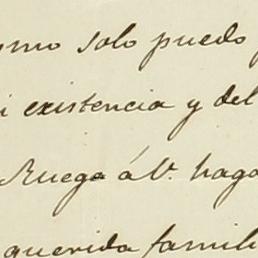 omo solo puedo
i existencia y del
Ruego á V. haga
querida famili